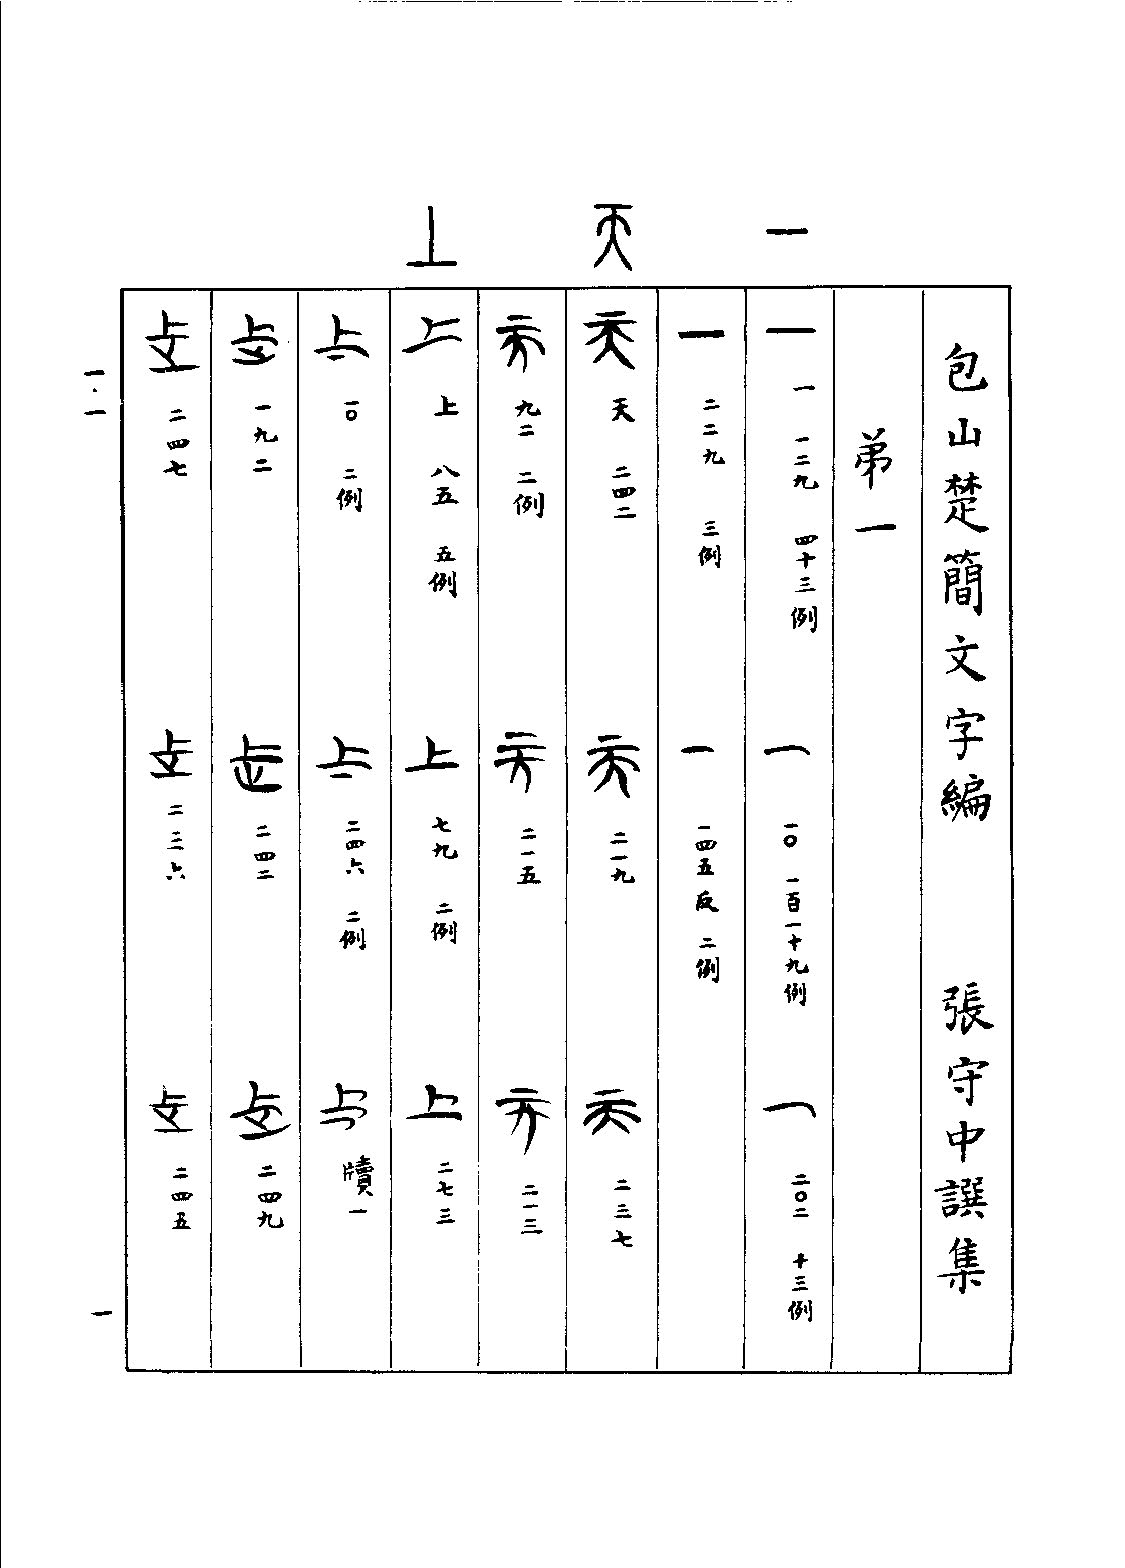 包山楚簡文字編 張守中撰集
弟一
一
一 一 一二九 四十三例 一 一〇 一百一十九例 一 二〇二 十三例
一 二二九 三例 一 一四五反 二例
天
天 天 二四二 天 二一九 天 二三七
天 九二 二例 天 二一五 天 二一三
上
上 上 八五 五例 上 七九 二例 上 二七三
上 一〇 二例 上 二四六 二例 上 牘一
一九二 二四二 二四九
二四七 二三六 二四五
一·一
一